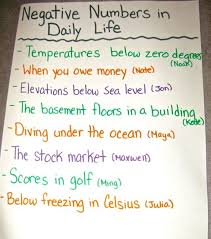 Negative Numbers in
Daily Life
- Temperatures below zero degrees
(Noah)
- When you owe money (Nate)
- Elevations below Sea level (Jon)
- The basement floors in a building
(Kate)
- Diving under the ocean (Maya)
- The stock market (Maxwell)
- Scores in golf (Ming)
- Below freezing in Celsius (Julia)